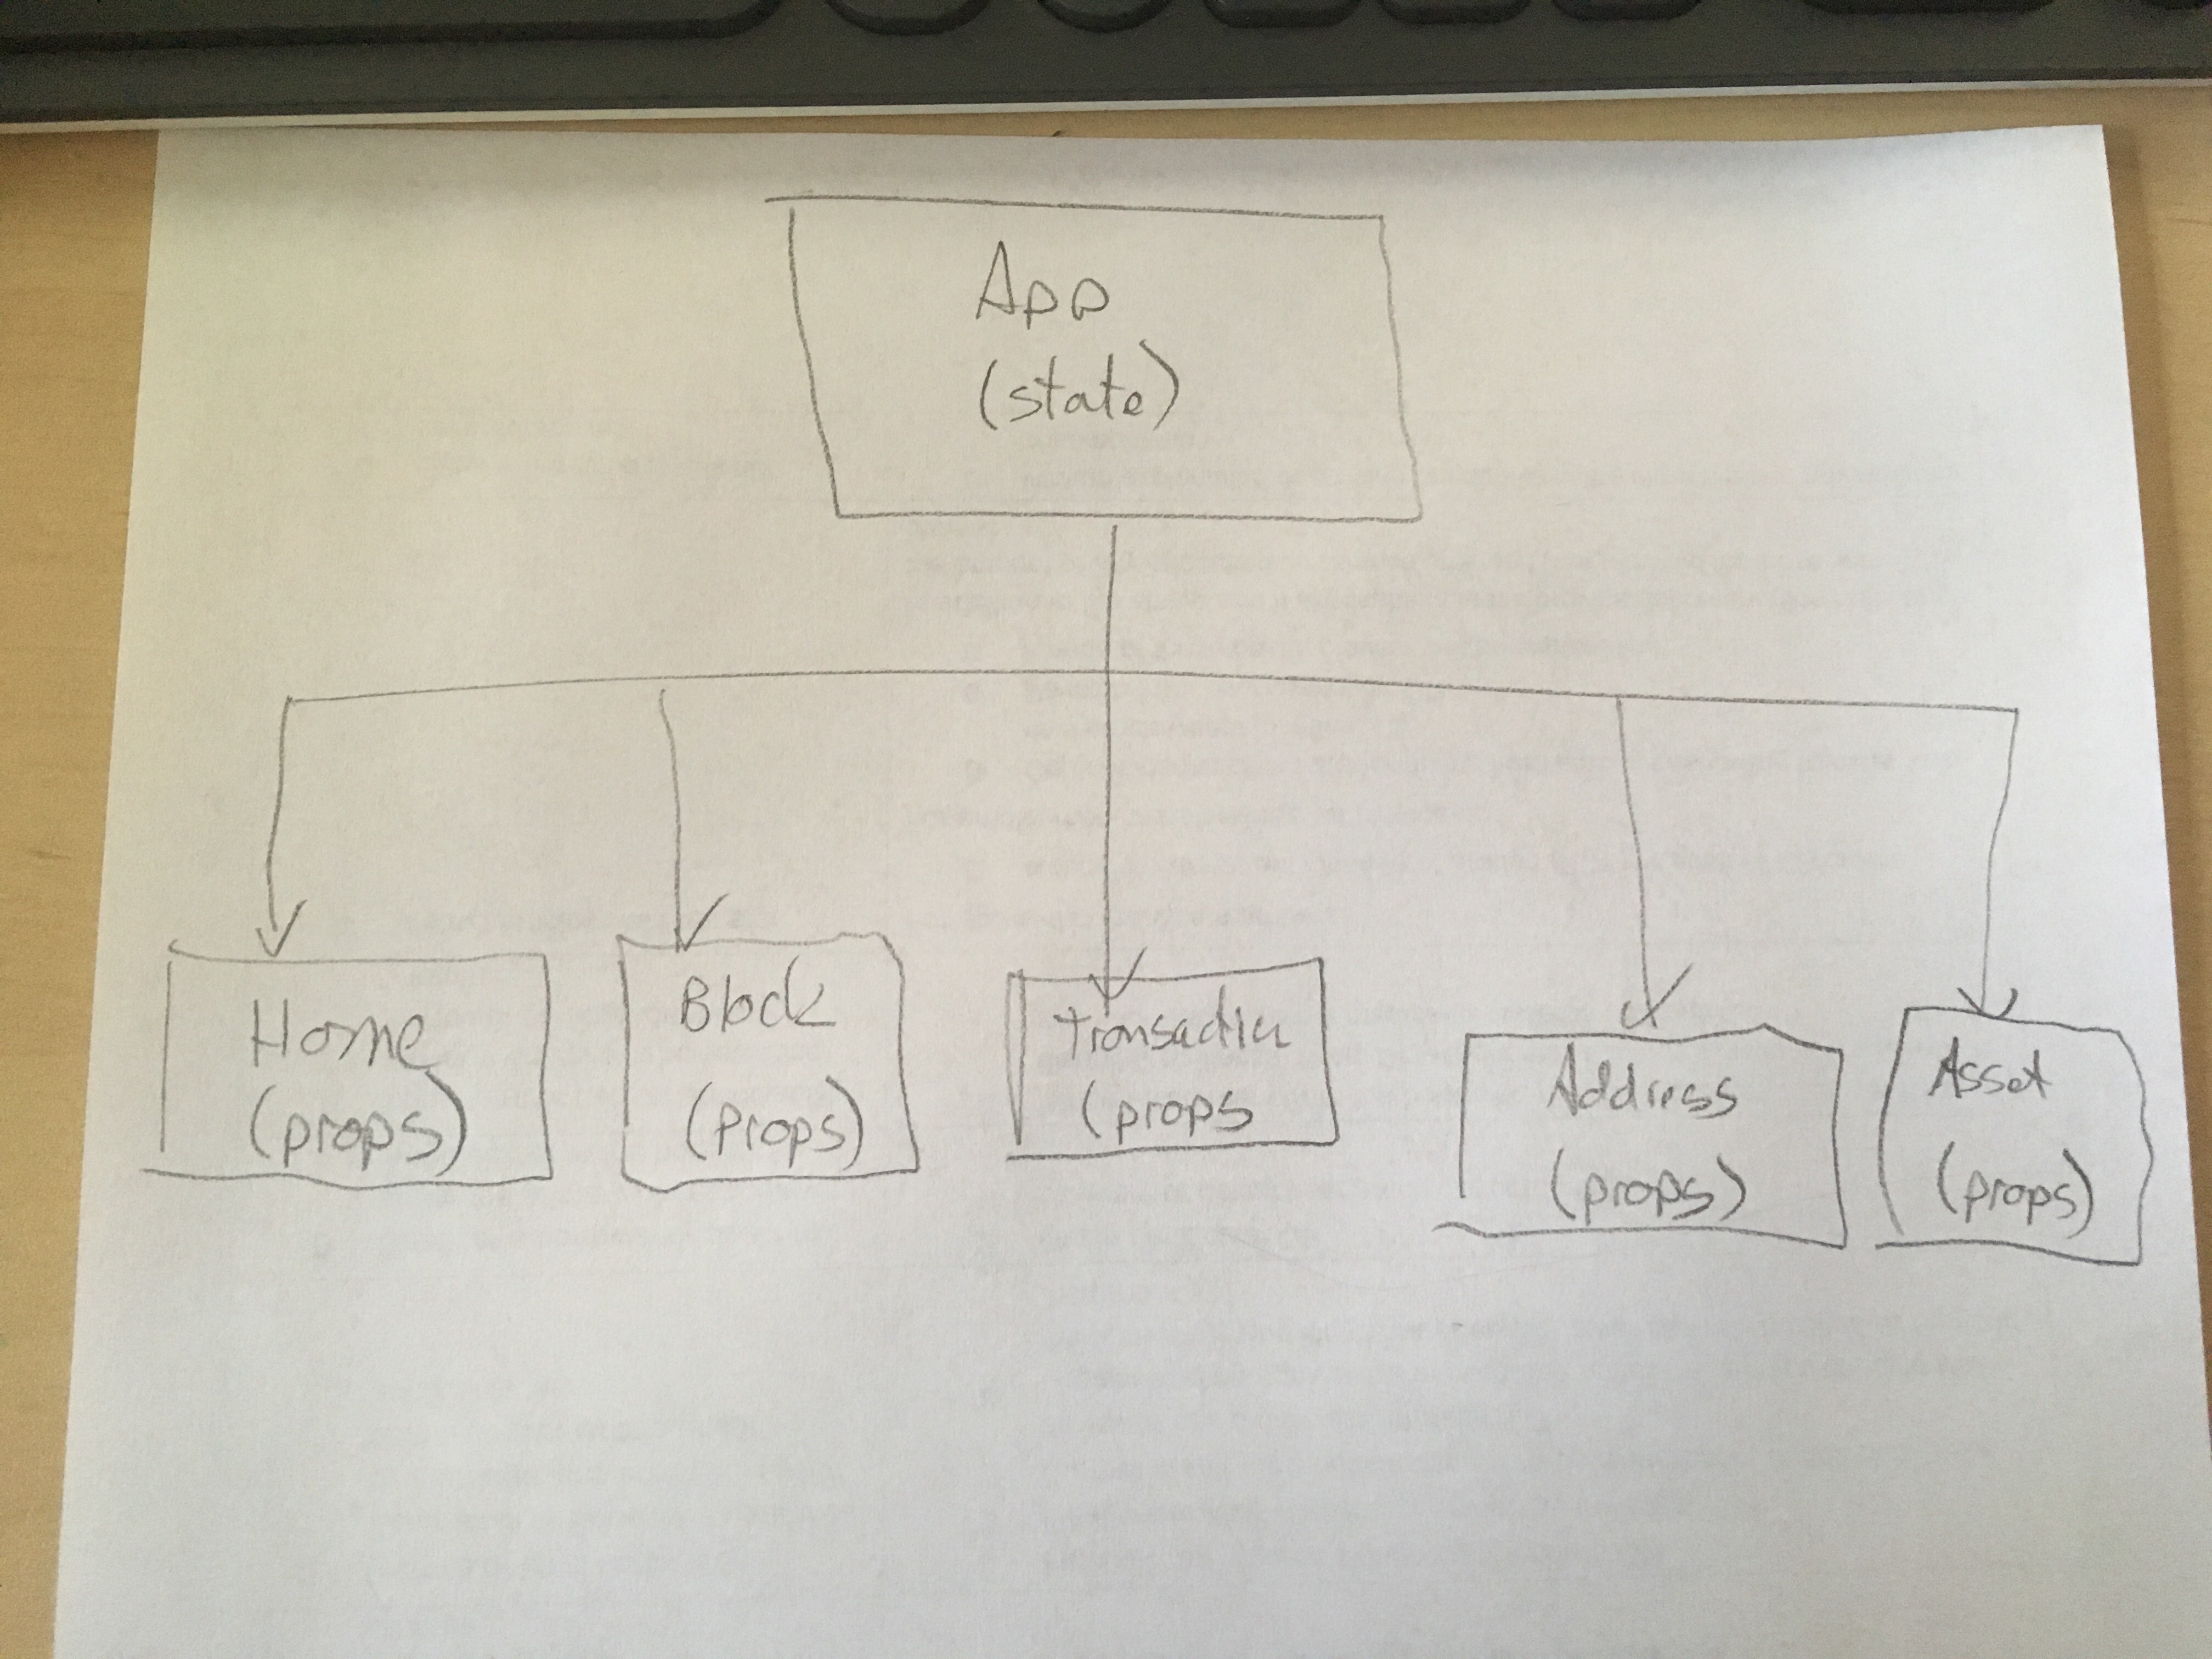 App
(state)
Home
(props)
Block
(props)
Transaction
(props
Address
(props)
Asset
(props)